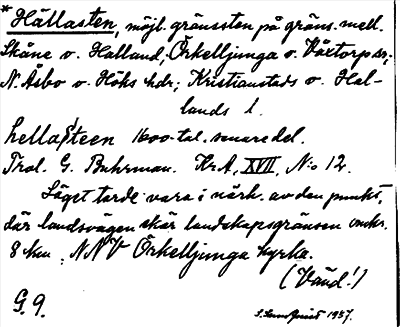 * Hällasten, möjl. gränssten på gräns. mell.
Skåne o. Halland; Örkelljunga o. Växtorp sr;
N. Åsbo o. Höks hdr; Kristianstads o. Hal-
lands l.
hella/steen 1600-tal. senare del.
Tral. G. Buhrman. Kr A, XVII, N:o 12.
Läget torde vara i närh. av den punkt,
där landsvägen skär landskapsgränsen omkr.
8 km. NNV Örkelljunga kyrka.
(Vänd!)
G. 9. 1937.